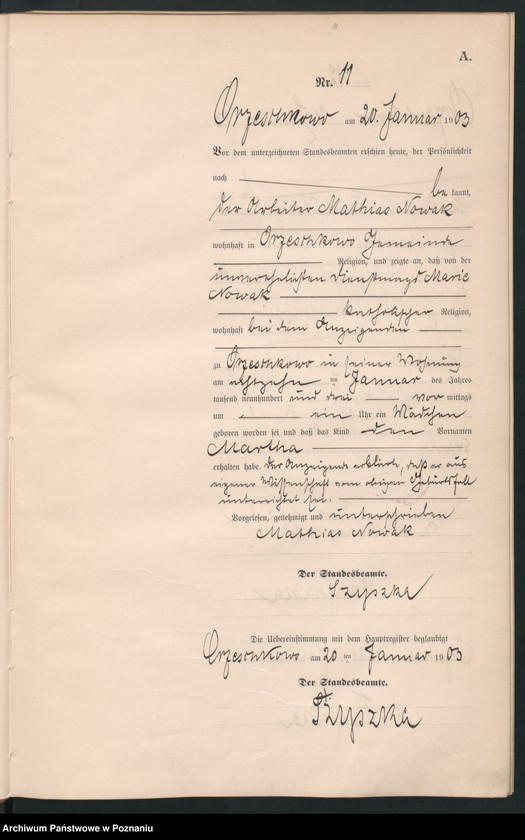 A.
Nr. 11
Orzeschkowo am 20. Januar 1903
Vor dem unterzeichneten Standesbeamten erschien heute, der Persönlichkeit
nach
be kannt,
der Arbeiter Mathias Nowak
wohnhaft in Orzeschkowo Gemeinde
Religion, und zeigte an, daß von der
unverehelichten Dienstmagd Marie
Nowak
katholischer Religion,
wohnhaft bei dem Anzeigenden
zu Orzeschkowo in seiner Wohnung
am achtzehn ten Januar des Jahres
tausend neunhundert und drei vor mittags
um ein Uhr ein Mädchen
geboren worden sei und daß das Kind den Vornamen
Martha
erhalten habe. Der Anzeigende erklärte, daß er aus
eigener Wissenschaft vom obigen Geburtsfall
unterrichtet sei.
Vorgelesen, genehmigt und unterschrieben
Mathias Nowak
Der Standesbeamte.
Szyszka
Die Uebereinstimmung mit dem Hauptregister beglaubigt
Orzeschkowo am 20 ten Januar 1903
Der Standesbeamte.
Szyszka
Archiwum Państwowe w Poznaniu